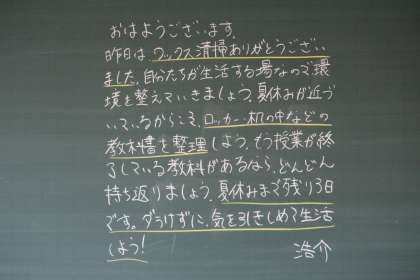 おはようございます。
昨日は ワックス清掃ありがとうござい
ました。自分たちが生活する場なので環
境を整えていきましょう。夏休みが近づ
いているからこそ、ロッカー・机の中などの
教科書を整理しよう。もう授業が終
了している教科があるなら、どんどん
持ち返りましょう。夏休みまで残り3日
です。ダラけずに、気を引きしめて生活
しよう!
浩介